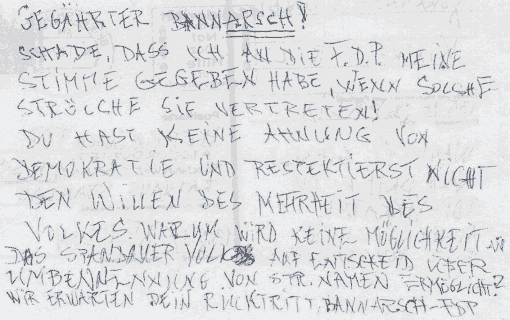 GEGÄHRTER BANNARSCH!
SCHADE, DASS ICH AN DIE F.D.P. MEINE
STIMME GEGEBEN HABE, WENN SOLCHE
STROLCHE SIE VERTRETEN!
DU HAST KEINE AHNUNG VON
DEMOKRATIE UND RESTEKTIERST NICHT
DEN WILLEN DES MEHRHEIT DES
VOLKES. WARUM WIRD KEINE MÖGLICHKEIT
DAS SPANDAUER VOLK AUF ENTSCHEID ÜBER
UMBENNENNUNG VON STR. NAMEN ERMÖGLICHT?
WIR ERWARTEN DEIN RÜCKTRITT, BANNARSCH-FDP